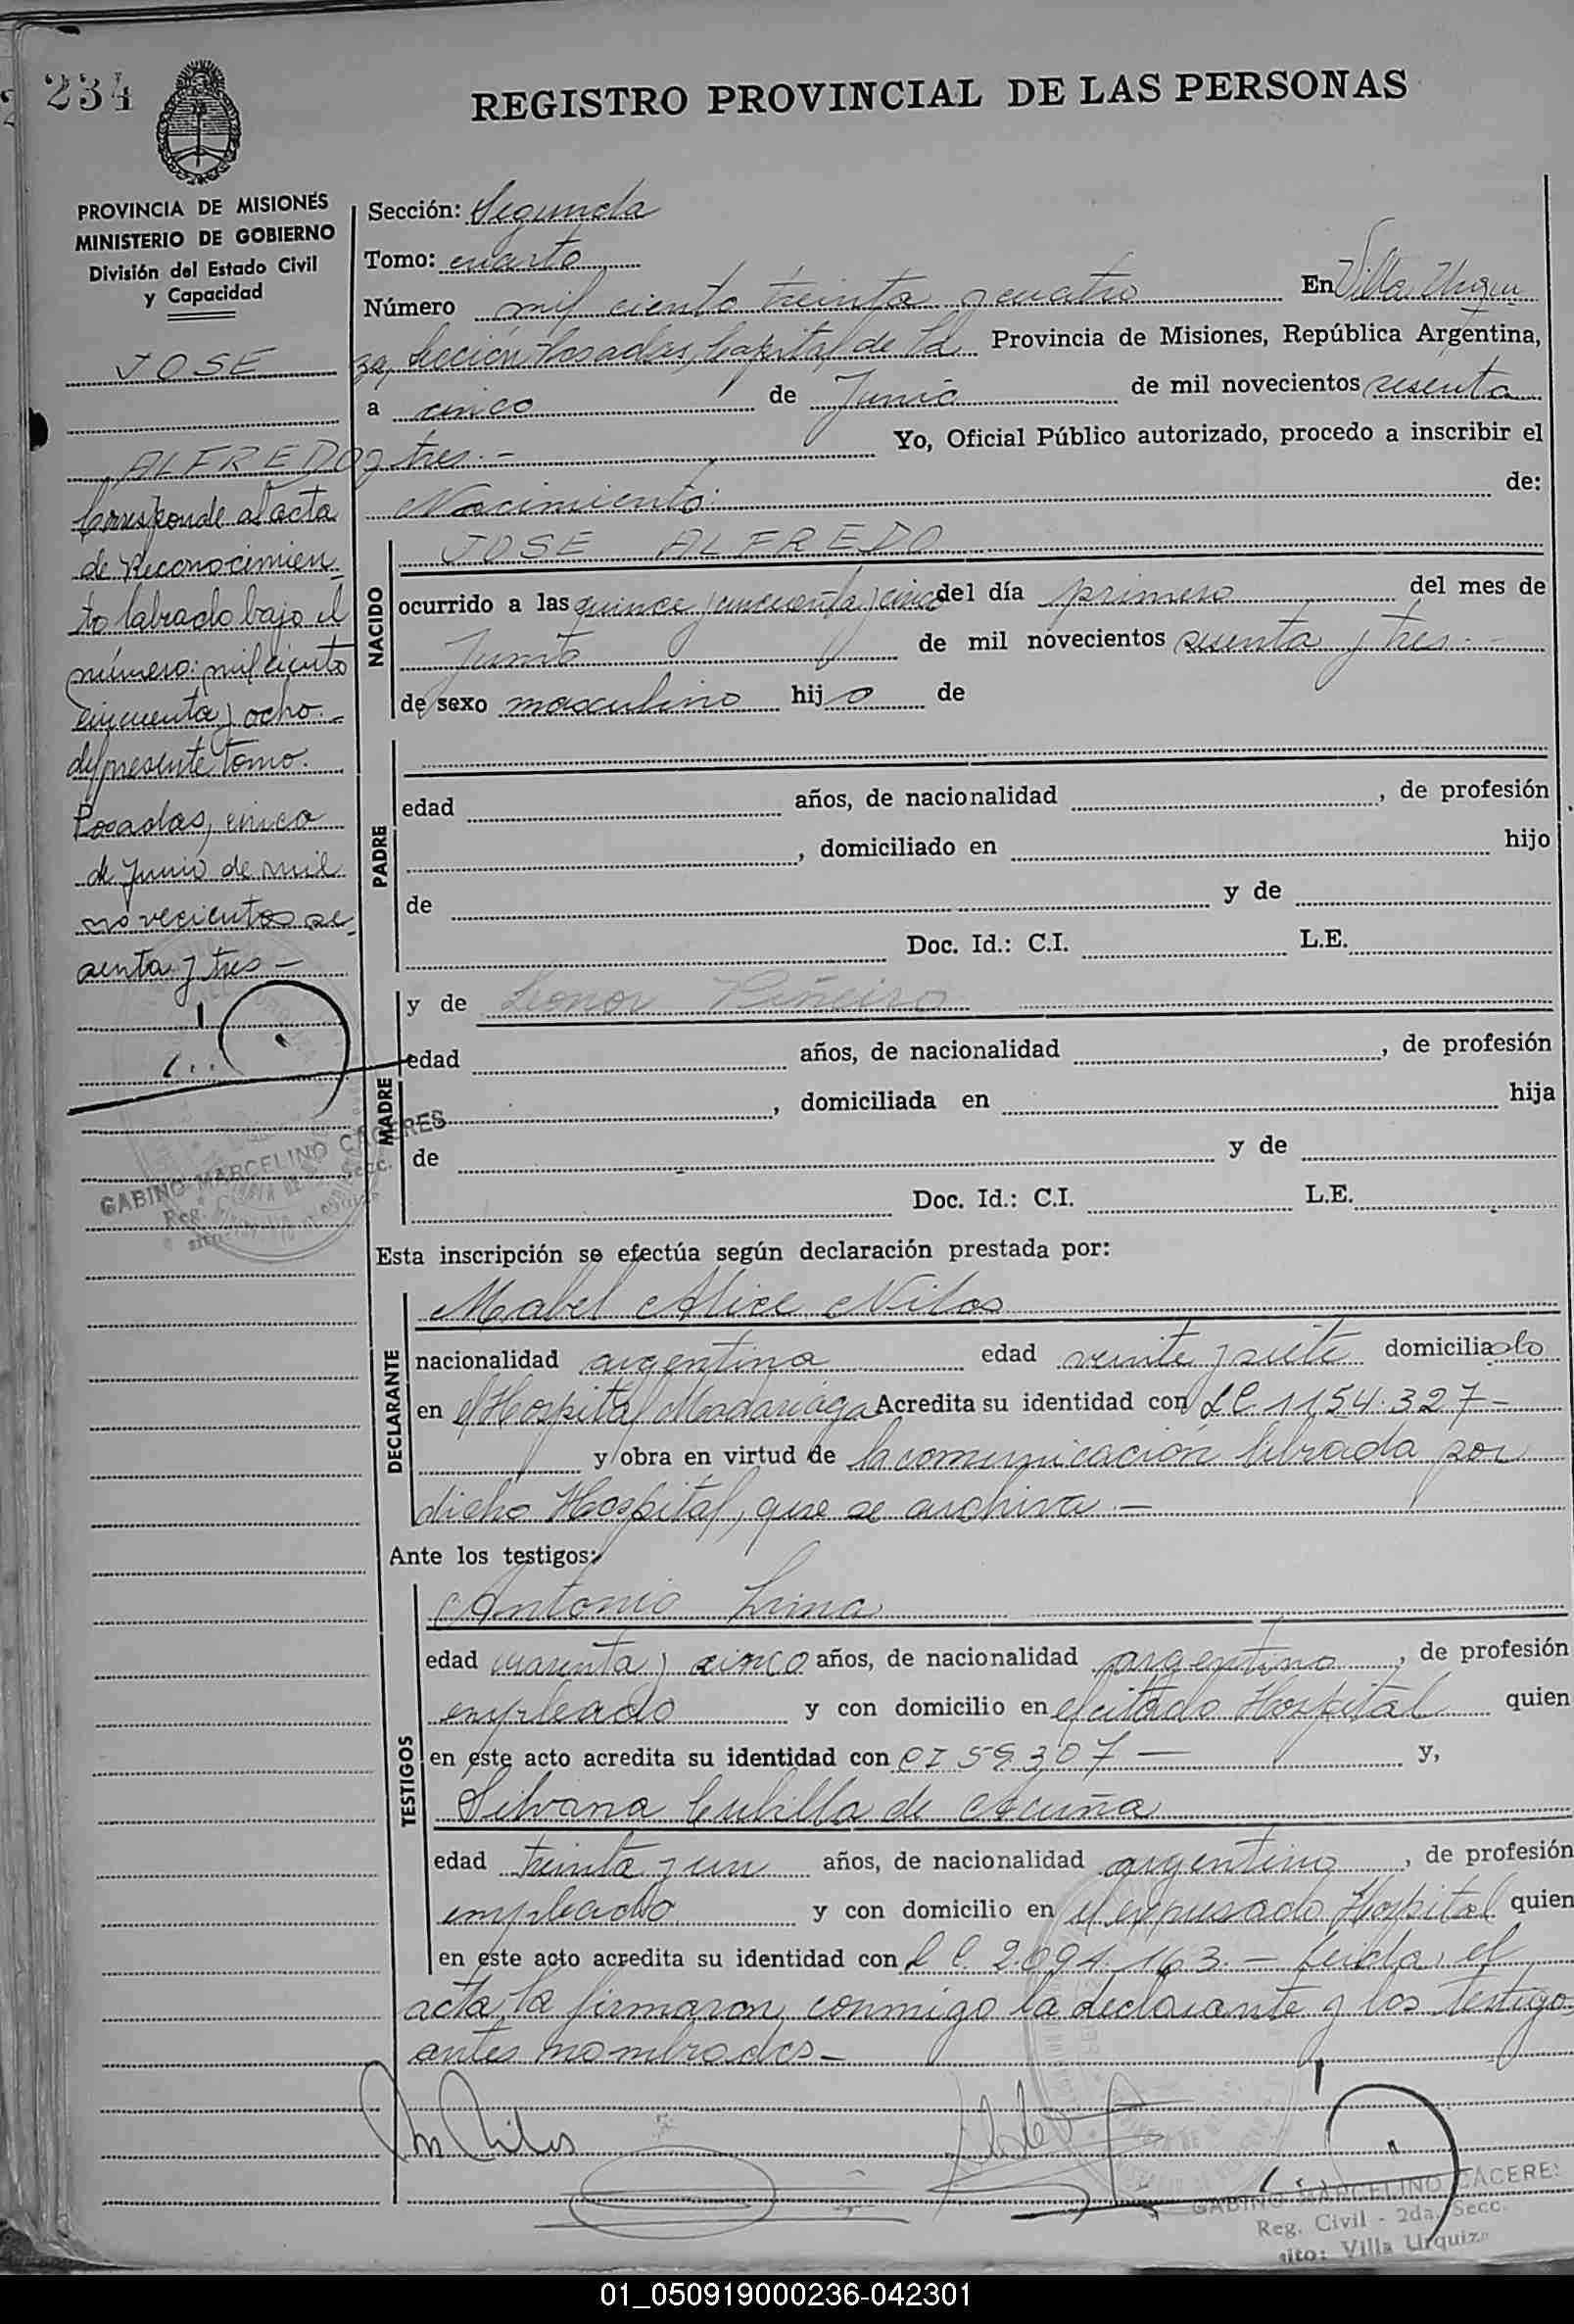 234
REGISTRO PROVINCIAL DE LAS PERSONAS
PROVINCIA DE MISIONES
MINISTERIO DE GOBIERNO
División del Estado Civil
y Capacidad
JOSE
ALFREDO
Corresponde al acta
de Reconocimien-
to labrado bajo el
número: mil ciento
cincuenta y ocho.-
del presente tomo.
Posadas, cinco
de Junio de mil
novecientos se-
senta y tres –
GABINO MARCELINO CACERES
Reg.
Secc.
Sección: Segunda
Tomo: cuarto
Número mil ciento treinta y cuatro En Villa Urqui
za, Sección Posadas, Capital de la Provincia de Misiones, República Argentina,
a cinco de Junio de mil novecientos sesenta
y tres.- Yo, Oficial Público autorizado, procedo a inscribir el
Nacimiento de:
NACIDO
JOSE ALFREDO
ocurrido a las quince y cincuenta y cinco del día primero del mes de
Junio de mil novecientos sesenta y tres.-
de sexo masculino hijo de
PADRE
edad años, de nacionalidad , de profesión
, domiciliado en hijo
de y de
Doc. Id.: C.I. L.E.
MADRE
y de Leonor Piñeiro
edad años, de nacionalidad , de profesión
, domiciliada en hija
de y de
Doc. Id.: C.I. L.E.
Esta inscripción se efectúa según declaración prestada por:
DECLARANTE
Mabel Alice Nilos
nacionalidad argentina edad veinte y siete domiciliado
en el Hospital Madariaga Acredita su identidad con LC 1154.327 –
y/obra en virtud de la comunicación librada por
dicho Hospital, que se archiva.–
Ante los testigos:
TESTIGOS
Antonio Lima
edad cuarenta y cinco años, de nacionalidad argentino, de profesión
empleado y con domicilio en el citado Hospital quien
en este acto acredita su identidad con CI 59.307 – y,
Silvana Cubilla de Acuña
edad treinta y un años, de nacionalidad argentina, de profesión
empleado y con domicilio en el expresado Hospital quien
en este acto acredita su identidad con LC 2.094.163.– Leida el
acta, la firmaron conmigo la declarante y los testigo
antes nombrados –
GABINO MARCELINO CACERES
Reg. Civil - 2da. Secc.
Villa Urquiza
01_050919000236-042301